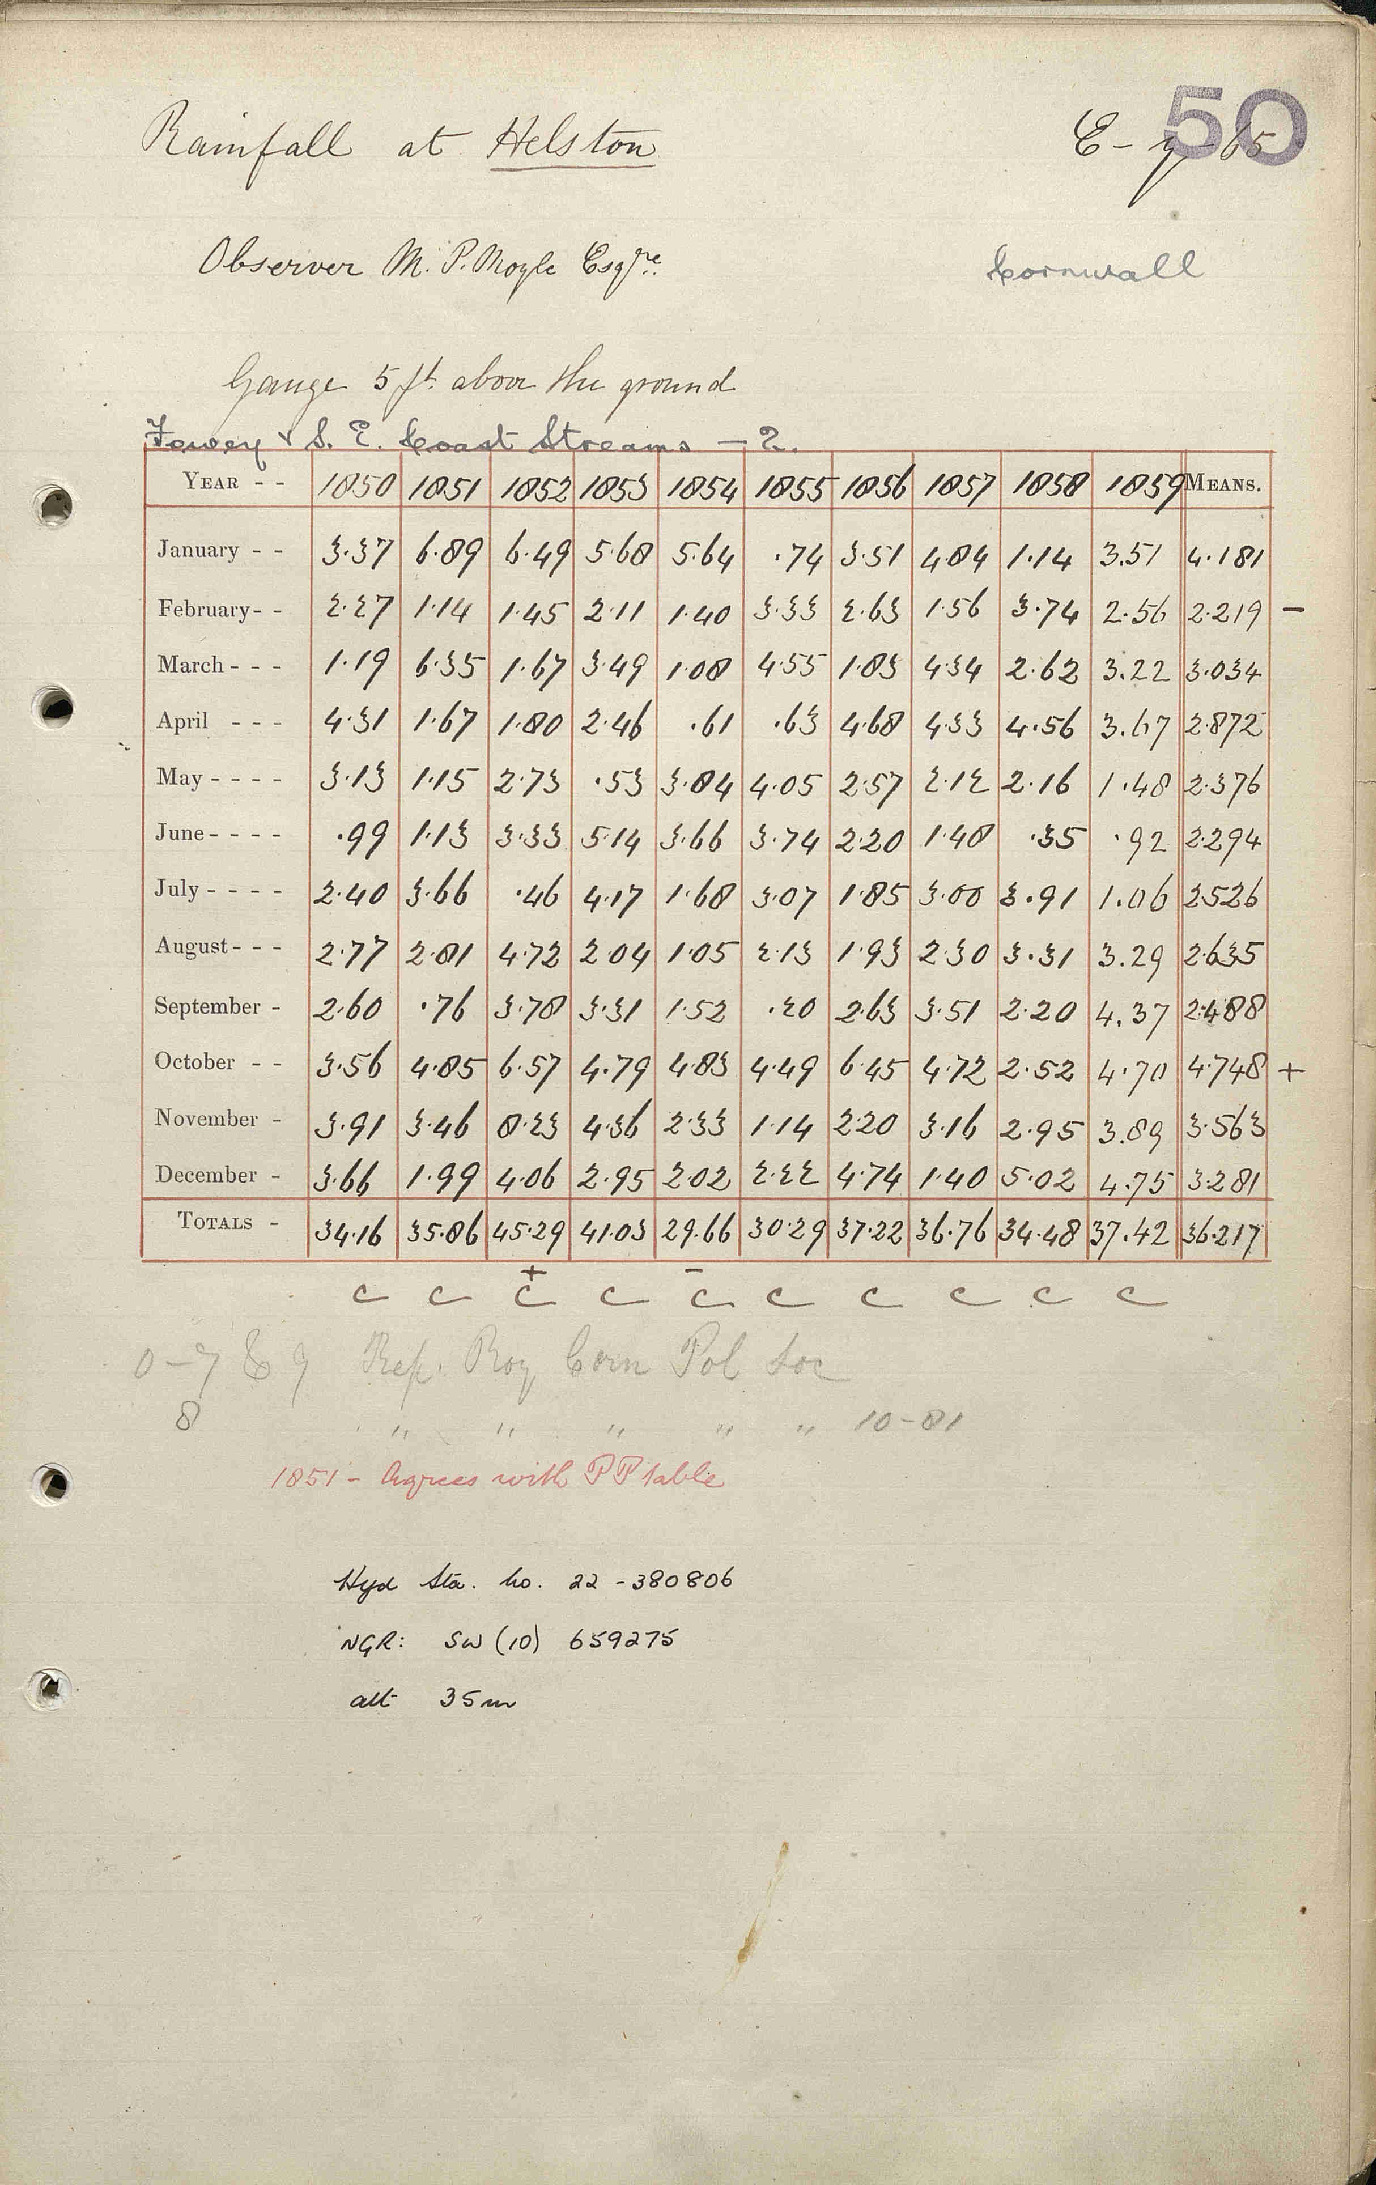 50
Rainfall at Helston
E - y - 65
Observer M. P. Moyle Esqre.
Cornwall
Gauge 5 ft above the ground
Fowey & S. E. Coast Streams - 2.
YEAR - - 1850 1851 1852 1853 1854 1855 1856 1857 1858 1859 MEANS.
January - - 3.37 6.89 6.49 5.68 5.64 .74 3.51 4.84 1.14 3.51 4.181
February - - 2.27 1.14 1.45 2.11 1.40 3.33 2.63 1.56 3.74 2.56 2.219 -
March - - - 1.19 6.35 1.67 3.49 1.08 4.55 1.83 4.34 2.62 3.22 3.034
April - - - 4.31 1.67 1.80 2.46 .61 .63 4.68 4.33 4.56 3.67 2.872
May - - - - 3.13 1.15 2.73 .53 3.84 4.05 2.57 2.12 2.16 1.48 2.376
June - - - - .99 1.13 3.33 5.14 3.66 3.74 2.20 1.48 .35 .92 2.294
July - - - - 2.40 3.66 .46 4.17 1.68 3.07 1.85 3.00 3.91 1.06 2.526
August - - - 2.77 2.81 4.72 2.04 1.05 2.13 1.93 2.30 3.31 3.29 2.635
September - 2.60 .76 3.78 3.31 1.52 .20 2.63 3.51 2.20 4.37 2.488
October - - 3.56 4.85 6.57 4.79 4.83 4.49 6.45 4.72 2.52 4.70 4.748 +
November - 3.91 3.46 8.23 4.36 2.33 1.14 2.20 3.16 2.95 3.89 3.563
December - 3.66 1.99 4.06 2.95 2.02 2.22 4.74 1.40 5.02 4.75 3.281
TOTALS - 34.16 35.86 45.29 41.03 29.66 30.29 37.22 36.76 34.48 37.42 36.217
+ -
C C C C C C C C C C
0-7 & 9 Rep. Roy Corn Pol Soc
8 " " " " " 10-81
1851 - Agrees with PP table
Hyd Sta. No. 22 - 380806
NGR: SW (10) 659275
alt 35m